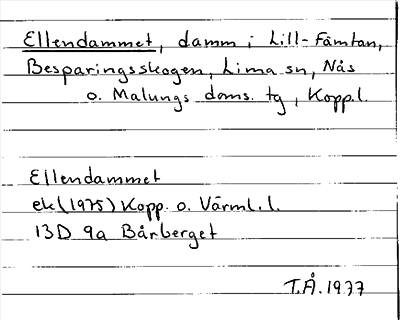 Ellendammet, damm i Lill-Fämtan,
Besparingsskogen, Lima sn, Nås
o. Malungs doms. tg, Kopp.l.
Ellendammet
ek (1975) Kopp. o. Värml. l.
13D 9a Bårberget
T.Å. 1977